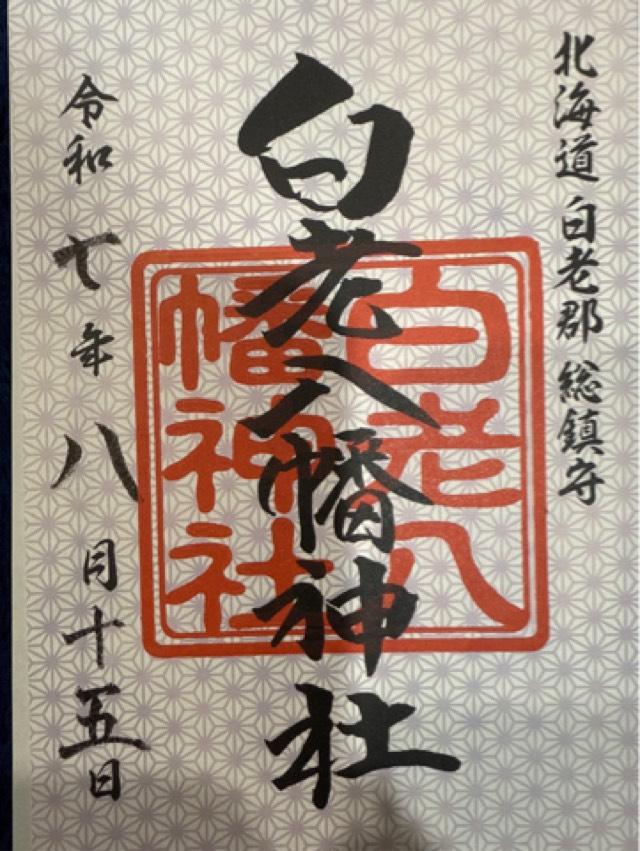 北海道 白老郡 総鎮守
白老八幡神社
白老八
幡神社
令和七年八月十五日